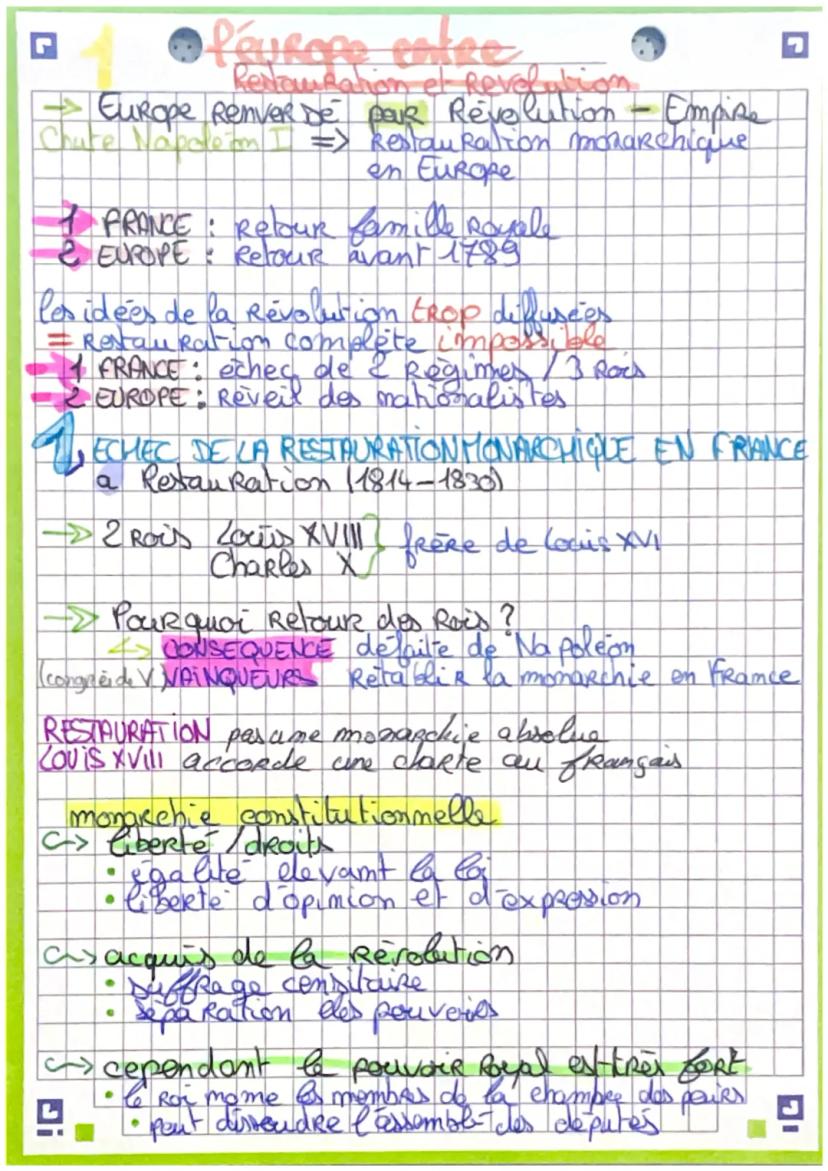 1 l'europe entre
Restauration et Revolution
→ Europe renversé par Révolution - Empire
Chute Napoléon I => Restauration monarchique
en Europe
1 FRANCE : Retour famille Royale
2 EUROPE : Retour avant 1789
les idées de la Révolution trop diffusées
= Restauration complète impossible
→ 1 FRANCE : échec de 2 Régimes / 3 Rois
→ 2 EUROPE : Réveil des nationalistes
1, ECHEC DE LA RESTAURATION MONARCHIQUE EN FRANCE
a Restauration (1814-1830)
→ 2 Rois Louis XVIII } frère de Louis XVI
Charles X
→ Pourquoi Retour des Rois ?
↳ CONSEQUENCE défaite de Napoléon
(congrés de V) VAINQUEURS Rétablir la monarchie en France
RESTAURATION pas une monarchie absolue
LOUIS XVIII accorde une charte au français
monarchie constitutionnelle
↪ liberté / droits
• égalité devant la loi
• liberté d'opinion et d'expression
↪ acquis de la Révolution
• suffrage censitaire
• séparation des pouvoirs
↪ cependant le pouvoir Royal est très fort
• le Roi nome les membres de la chambre des pairs
• peut dissoudre l'assemblé des députés